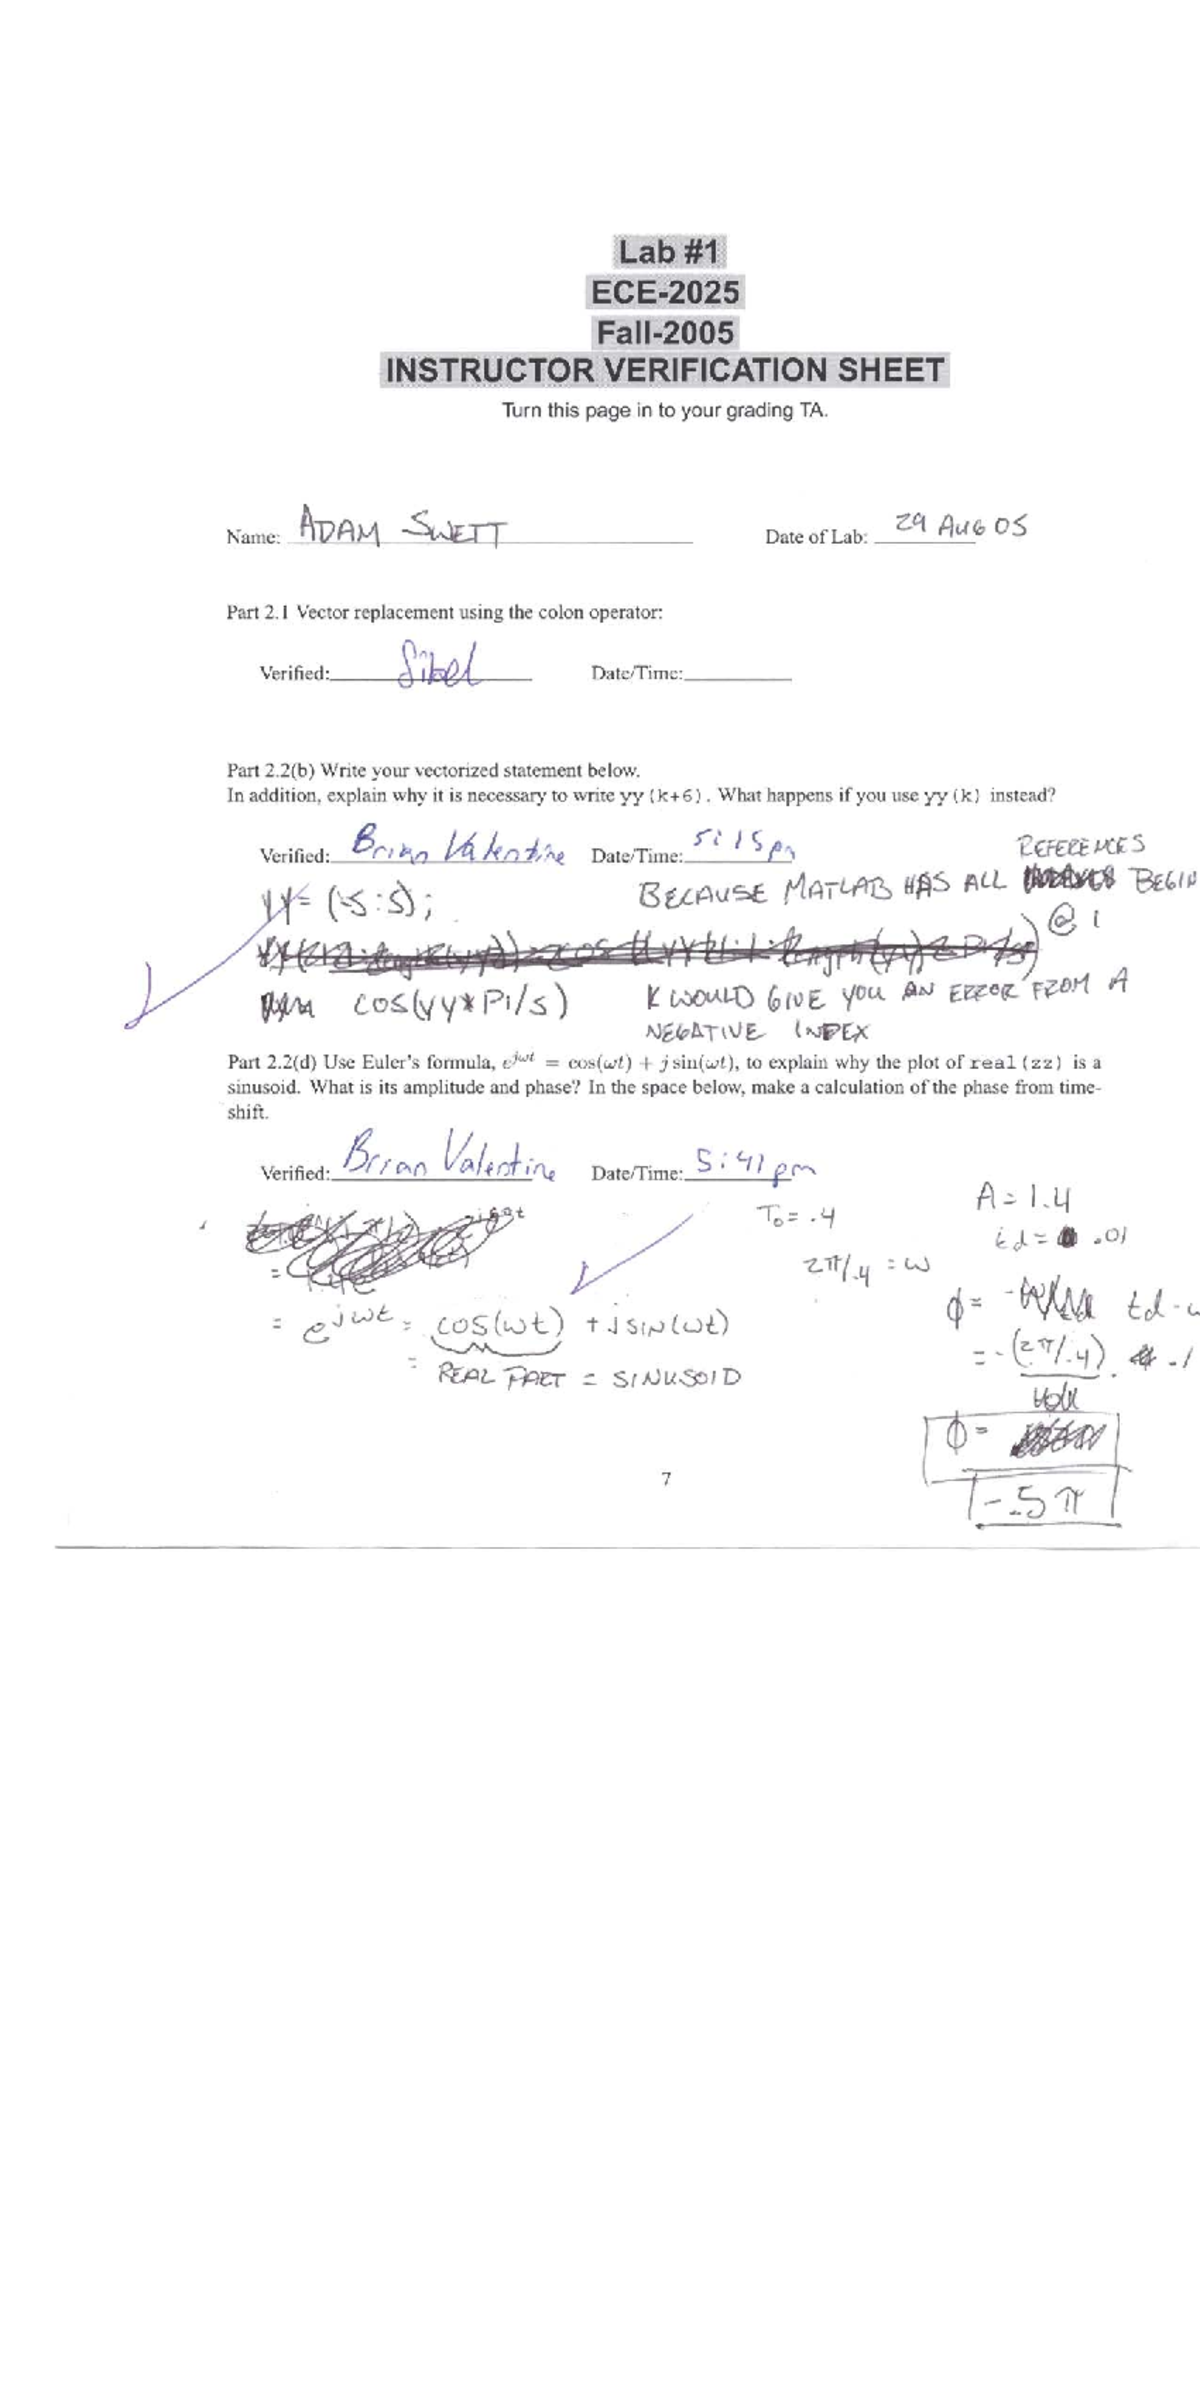 Lab #1
ECE-2025
Fall-2005
INSTRUCTOR VERIFICATION SHEET
Turn this page in to your grading TA.
Name: ADAM SWETT Date of Lab: 29 AUG 05
Part 2.1 Vector replacement using the colon operator:
Verified: Sibel Date/Time:
Part 2.2(b) Write your vectorized statement below.
In addition, explain why it is necessary to write yy(k+6). What happens if you use yy(k) instead?
Verified: Brian Valentine Date/Time: 5:15pm
REFERENCES
yy= (-5:5); BECAUSE MATLAB HAS ALL BEGIN
@ 1
cos(yy*Pi/5) K WOULD GIVE YOU AN ERROR FROM A
NEGATIVE INDEX
Part 2.2(d) Use Euler's formula, e^jωt = cos(ωt) + j sin(ωt), to explain why the plot of real(zz) is a
sinusoid. What is its amplitude and phase? In the space below, make a calculation of the phase from time-
shift.
Verified: Brian Valentine Date/Time: 5:41pm
T₀= .4 A = 1.4
td = .01
2π/.4 = ω
= e^jωt = cos(ωt) + jsin(ωt) ϕ= td -
= REAL PART = SINUSOID = -(2π/.4) .1
ϕ=
7
-.5π